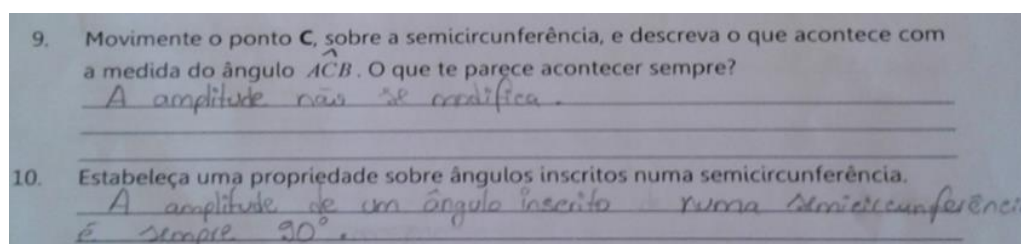 9. Movimente o ponto C, sobre a semicircunferência, e descreva o que acontece com
a medida do ângulo AĈB. O que te parece acontecer sempre?
A amplitude não se modifica.
10. Estabeleça uma propriedade sobre ângulos inscritos numa semicircunferência.
A amplitude de um ângulo inscrito numa semicircunferênci
é sempre 90°.